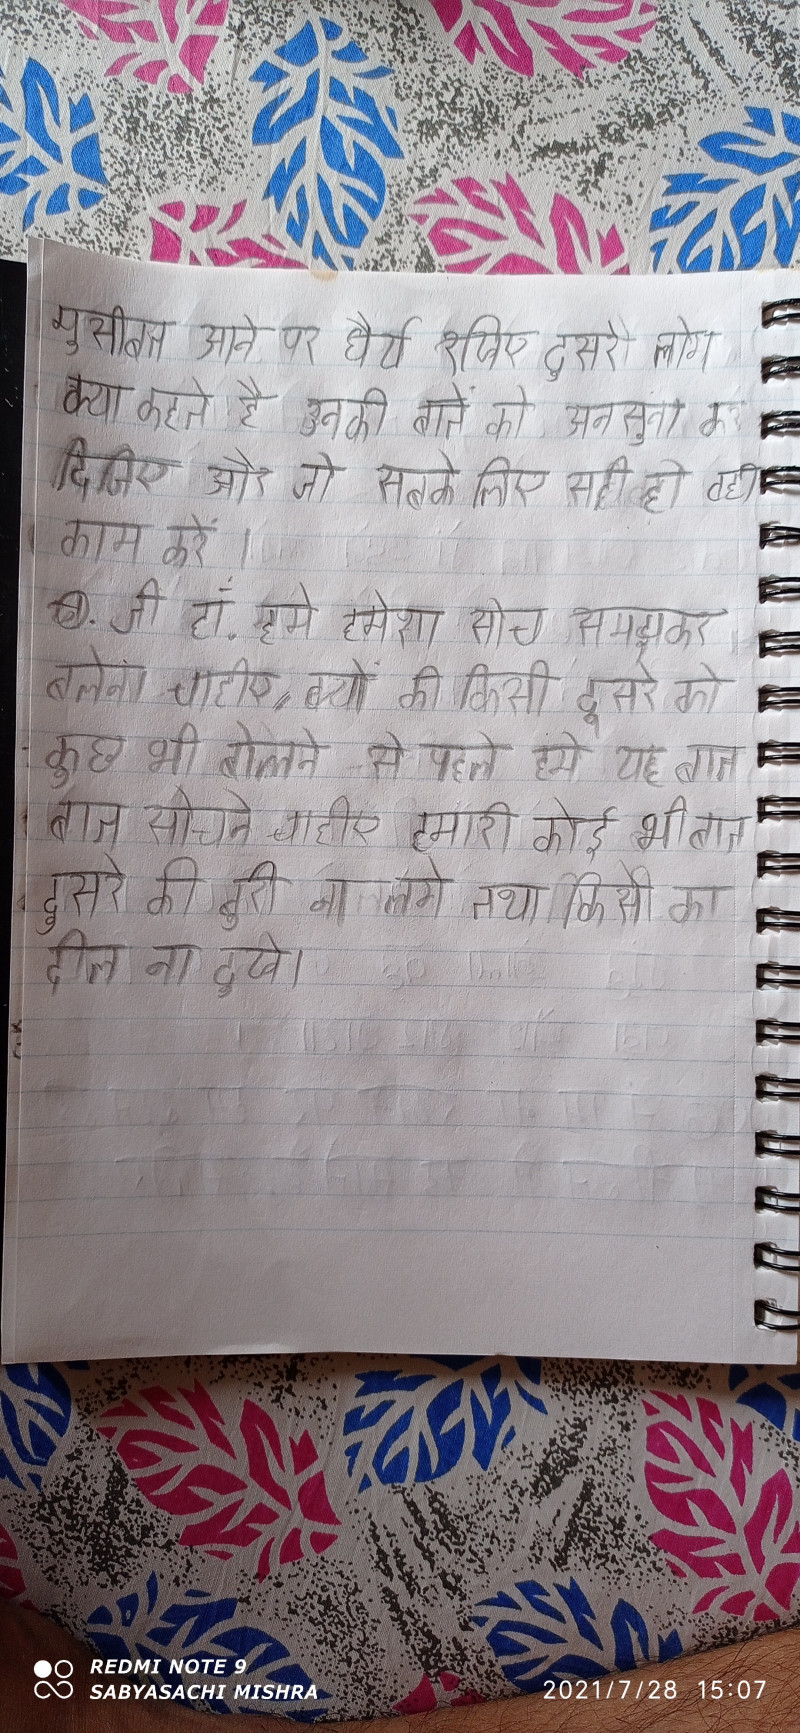 मुसीबत आने पर धैर्य रखिए दुसरो लोग
क्या कहते है उनकी बातें को अनसुना कर
दिजिए और जो सबके लिए सही हो वही
काम करें ।
जी हां. हमे हमेशा सोच समझकर
बलेना चाहीए, क्यों की किसी दूसरे को
कुछ भी बोलने से पहले हमे यह बात
बात सोचने चाहीए हमारी कोई भी बात
दुसरे की बुरी ना लगे तथा किसी का
दील ना दुखे।
REDMI NOTE 9
SABYASACHI MISHRA
2021/7/28 15:07